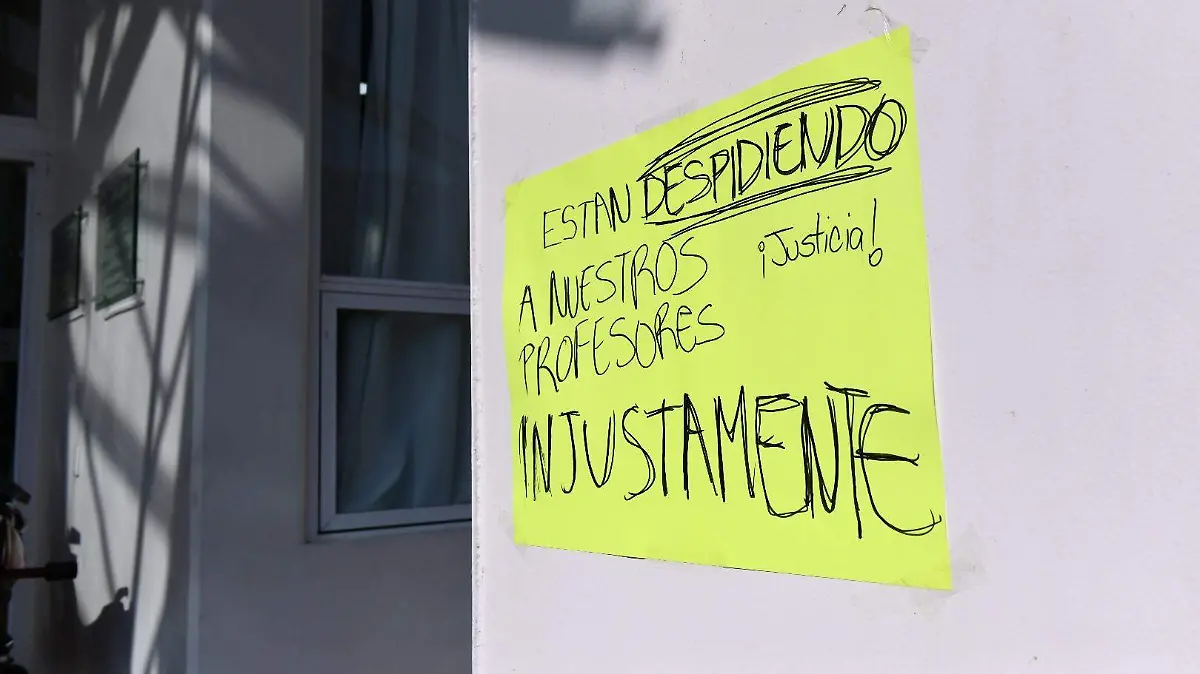 ESTAN DESPIDIENDO
A NUESTROS ¡Justicia!
PROFESORES
INJUSTAMENTE